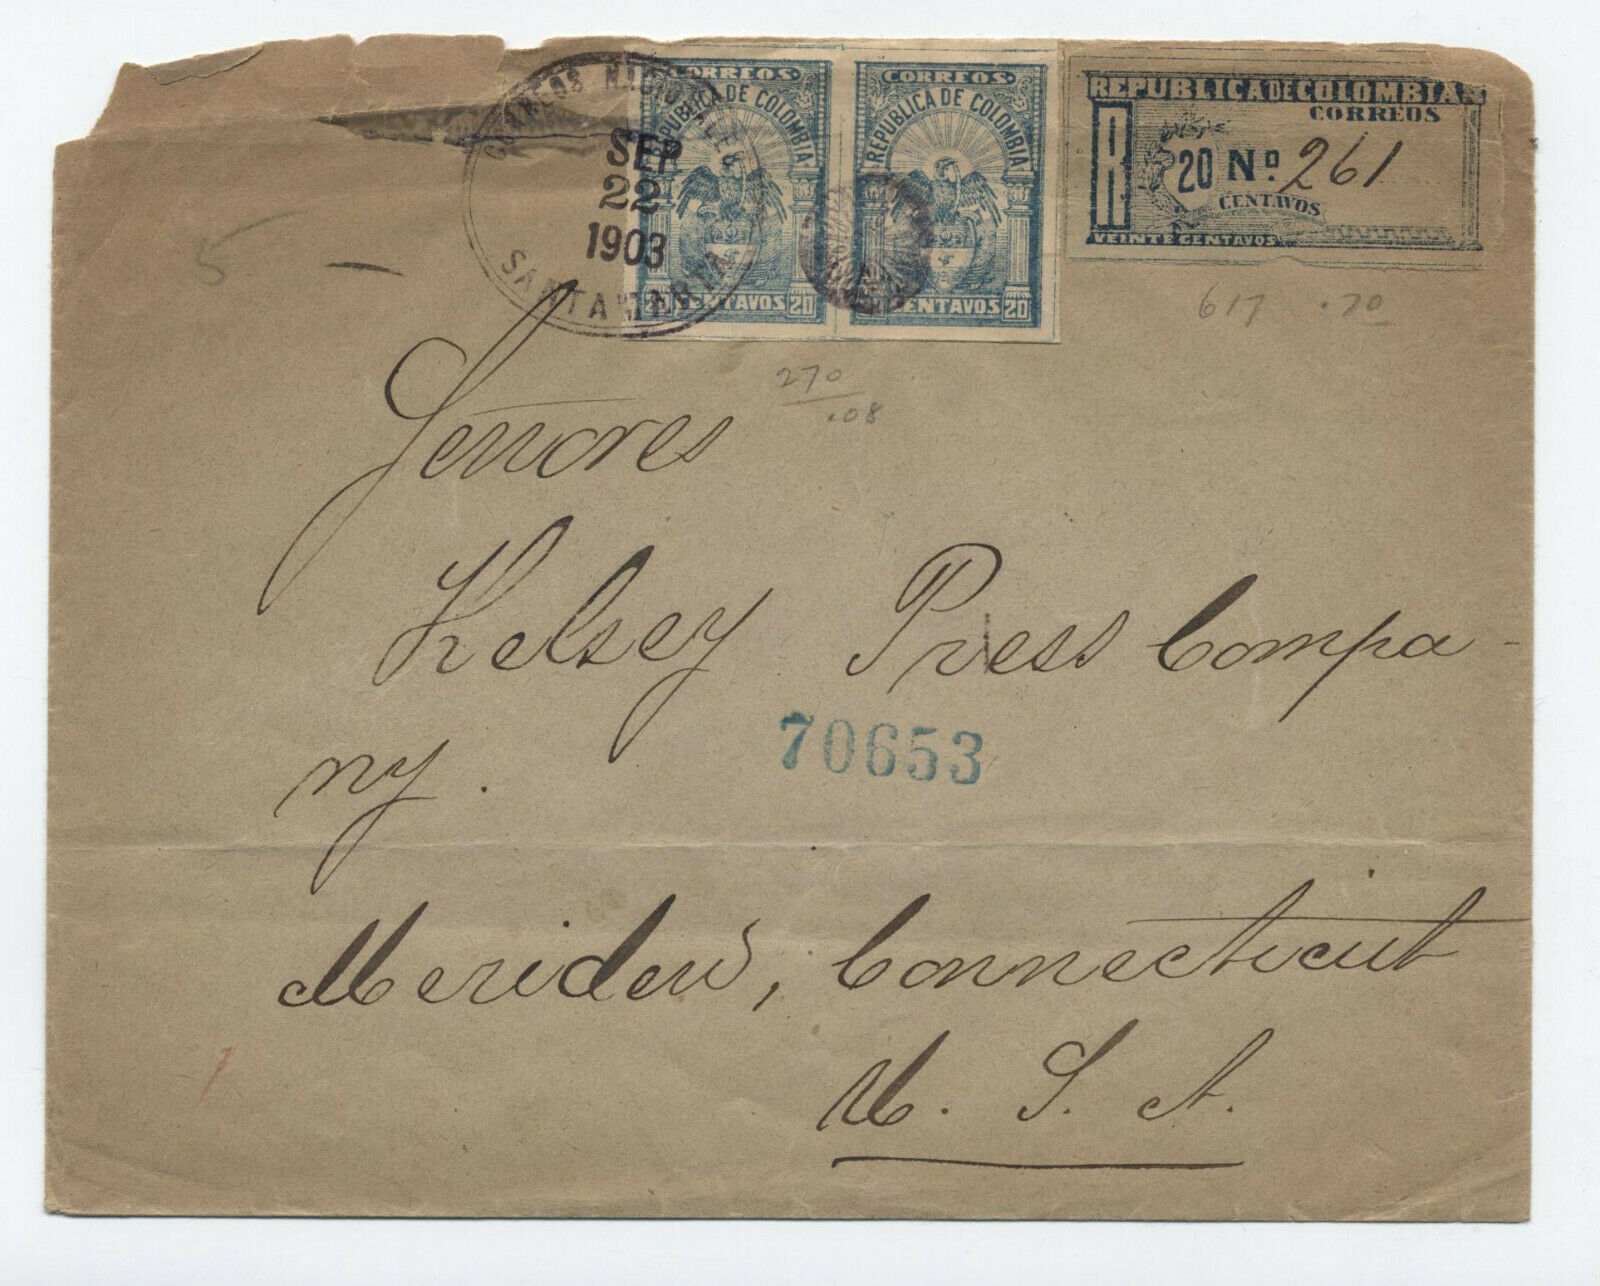 CORREOS NACIONALES
SEP
22
1903
SANTA MARTA
CORREOS
REPUBLICA DE COLOMBIA
20 CENTAVOS 20
CORREOS
REPUBLICA DE COLOMBIA
CENTAVOS 20
REPUBLICA DE COLOMBIA
CORREOS
R
20 Nº 261
CENTAVOS
VEINTE CENTAVOS
5
617 .70
270
.08
Señores
Kelsey Press Compa-
ny.
70653
Meriden, Connecticut
U. S. A.